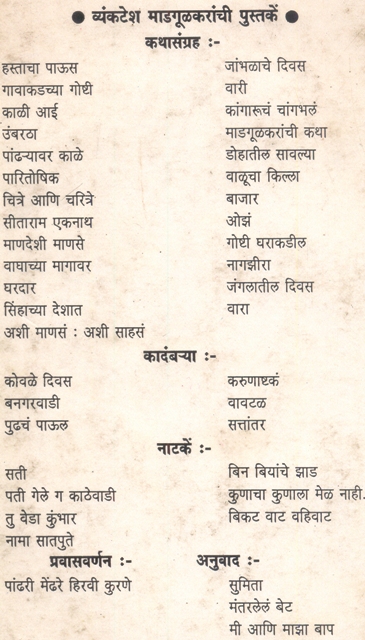 ● व्यंकटेश माडगूळकरांची पुस्तकें ●
कथासंग्रह :-
हस्ताचा पाऊस जांभळाचे दिवस
गावाकडच्या गोष्टी वारी
काळी आई कांगारूचं चांगभलं
उंबरठा माडगूळकरांची कथा
पांढऱ्यावर काळे डोहातील सावल्या
पारितोषिक वाळूचा किल्ला
चित्रे आणि चरित्रे बाजार
सीताराम एकनाथ ओझं
माणदेशी माणसे गोष्टी घराकडील
वाघाच्या मागावर नागझीरा
घरदार जंगलातील दिवस
सिंहाच्या देशात वारा
अशी माणसं : अशी साहसं
कादंबऱ्या :-
कोवळे दिवस करुणाष्टकं
बनगरवाडी वावटळ
पुढचं पाऊल सत्तांतर
नाटकें :-
सती बिन बियांचे झाड
पती गेले ग काठेवाडी कुणाचा कुणाला मेळ नाही.
तु वेडा कुंभार बिकट वाट वहिवाट
नामा सातपुते
प्रवासवर्णन :- अनुवाद :-
पांढरी मेंढरे हिरवी कुरणे सुमिता
मंतरलेलं बेट
मी आणि माझा बाप